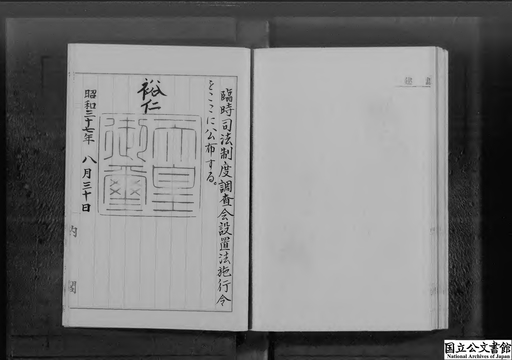 臨時司法制度調査会設置法施行令
をここに公布する。
裕仁
天皇
御璽
昭和三十七年 八月三十日
内閣
国立公文書館
National Archives of Japan